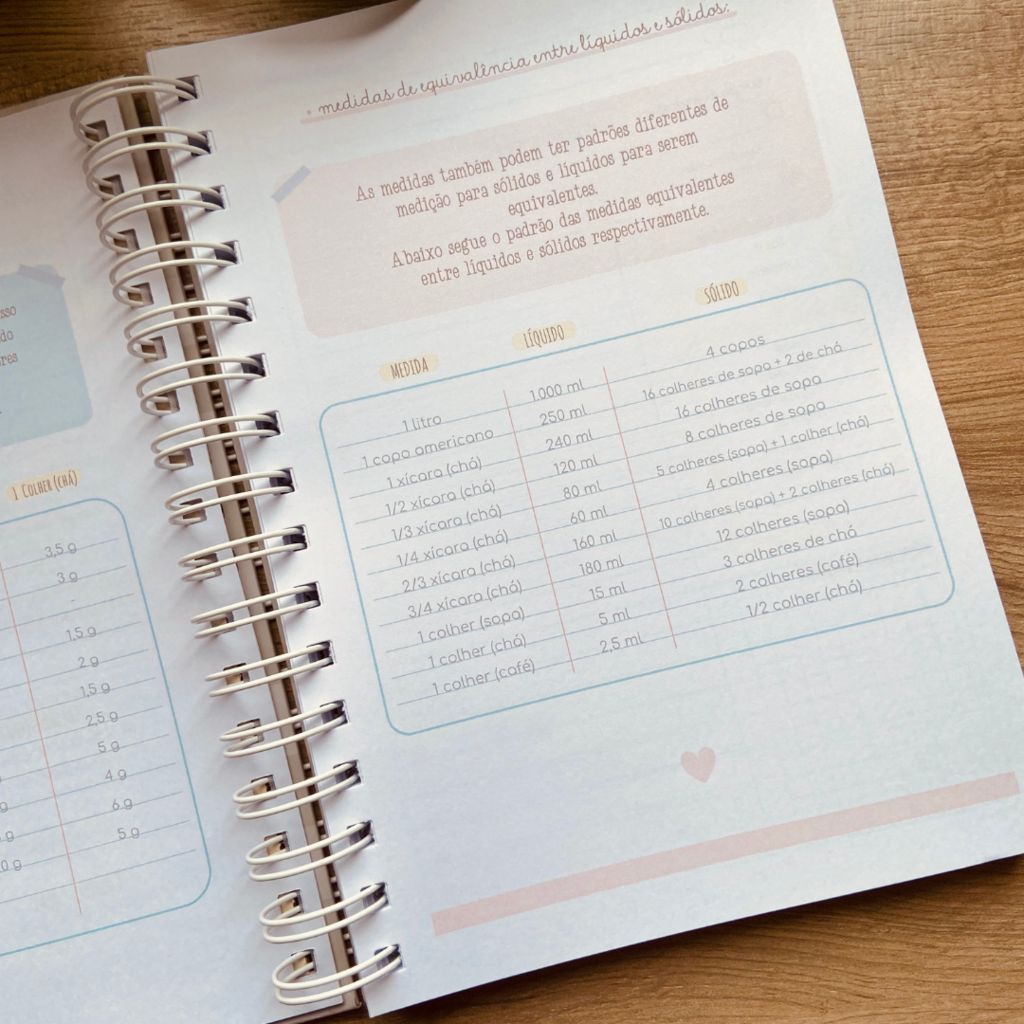 sso
do
res
1 COLHER (CHÁ)
3,5 g
3 g
-
1,5 g
2 g
1,5 g
2,5 g
5 g
4 g
6 g
5 g
+ medidas de equivalência entre líquidos e sólidos:
As medidas também podem ter padrões diferentes de
medição para sólidos e líquidos para serem
equivalentes.
Abaixo segue o padrão das medidas equivalentes
entre líquidos e sólidos respectivamente.
MEDIDA LÍQUIDO SÓLIDO
1 litro 1.000 ml 4 copos
1 copo americano 250 ml 16 colheres de sopa + 2 de chá
1 xícara (chá) 240 ml 16 colheres de sopa
1/2 xícara (chá) 120 ml 8 colheres de sopa
1/3 xícara (chá) 80 ml 5 colheres (sopa) + 1 colher (chá)
1/4 xícara (chá) 60 ml 4 colheres (sopa)
2/3 xícara (chá) 160 ml 10 colheres (sopa) + 2 colheres (chá)
3/4 xícara (chá) 180 ml 12 colheres (sopa)
1 colher (sopa) 15 ml 3 colheres de chá
1 colher (chá) 5 ml 2 colheres (café)
1 colher (café) 2,5 ml 1/2 colher (chá)